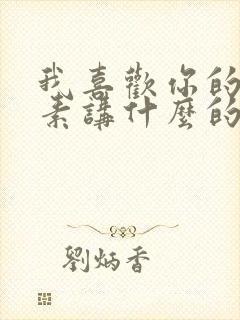 我喜歡你的
素講什麼的
劉炳香